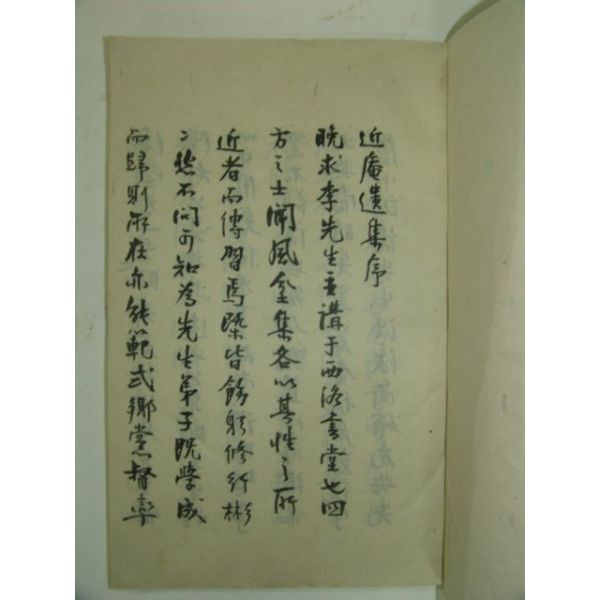 近庵遺集序
晩求李先生主講于西洛書堂也四
方之士聞風坌集各以其性之所
近者而傳習焉槩皆飭躬修行彬
彬然不問可知為先生弟子旣學成
而歸則所在亦能範式鄉黨督率